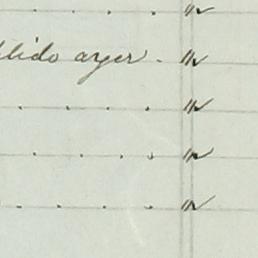 . . . . "
lido ayer. "
. . . . "
. . . . "
. . . . "